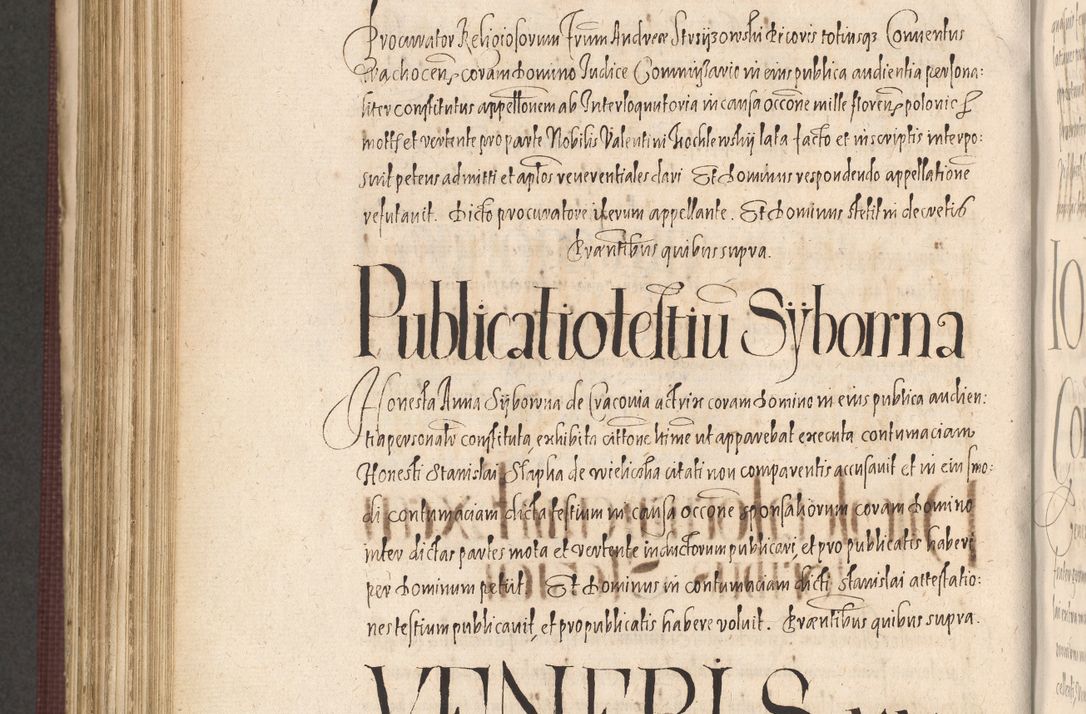 Procurator Religiosorum Frum Andreæ Strsyzowski Prioris totiusqz Conuentus
Prachocen, coram domino Iudice Commissario in eius publica audientia persona:
liter constitutus appellonem ab Interloqutoria in causa occone mille floren polonic
motis et vertente pro parte Nobilis Valentini Kochlewskij lata facto et in scriptis interpo:
suit petens admitti et aptos reuerentiales dari Et dominus respondendo appellatione
refutauit. Dicto procuratore iterum appellante. Et Dominus stetit in decretis
Præntibus quibus supra.
Publicatio testiu Sÿborrna
Honesta Anna Sÿborrna de Cracouia actrix coram domino in eius publica audien:
tia personalr constituta, exhibita cittone hinc ut apparebat executa contumaciam
Honesti Stanislai Stapha de wielicska citati non comparentis accusauit et in eius mo:
di contumaciam dicta testium in causa occone sponsaliorum coram domino
inter dictas partes mota et vertente inductorum publicari, et pro publicatis haberi
per dominum petijt. Et Dominus in contumaciam dicti Stanislai attestatio:
nes testium publicauit, et pro publicatis habere voluit. Præntibus quibus supra.
VENERIS